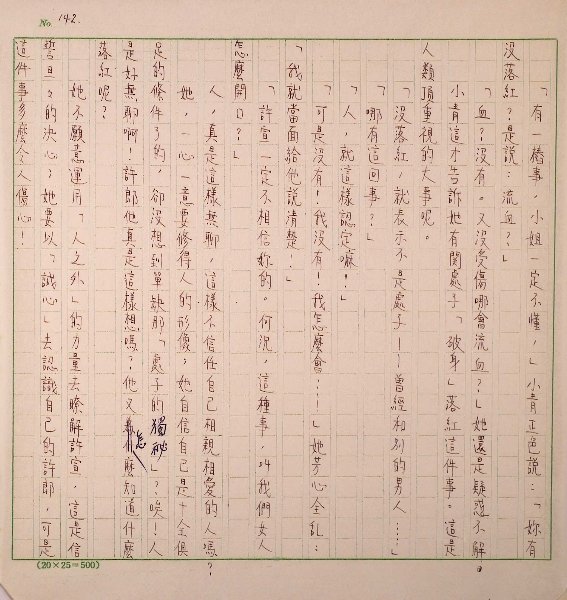 No. 142.
「有一樁事，小姐一定不懂，」小青正色說：「妳有
沒落紅？是說：流血？」
「血？沒有。又沒受傷哪會流血？」她還是疑惑不解。
小青這才告訴她有関處子「破身」落紅這件事。這是
人類頂重視的大事呢。
「沒落紅，就表示不是處子——曾經和別的男人……」
「哪有這回事？」
「人，就這樣認定嘛！」
「可是沒有！我沒有！我怎麼會……」她芳心全乱：
「我就當面給他說清楚！」
「許宣一定不相信妳的。何況，這種事，叫我們女人
怎麼開口？」
人，真是這樣無聊，這樣不信任自己相親相愛的人嗎？
她，一心一意要修得人的形像，她自信自己是十全俱
足的條件了的，卻沒想到單缺那「處子的獨秘」？唉！人
是好無聊啊！許郎他真是這樣想嗎？他又怎麼知道什麼
落紅呢？
她不願意運用「人之外」的力量去瞭解許宣，這是信
誓旦々的決心？她要以「誠心」去認識自己的許郎，可是
這件事多麼令人傷心！
(20×25=500)